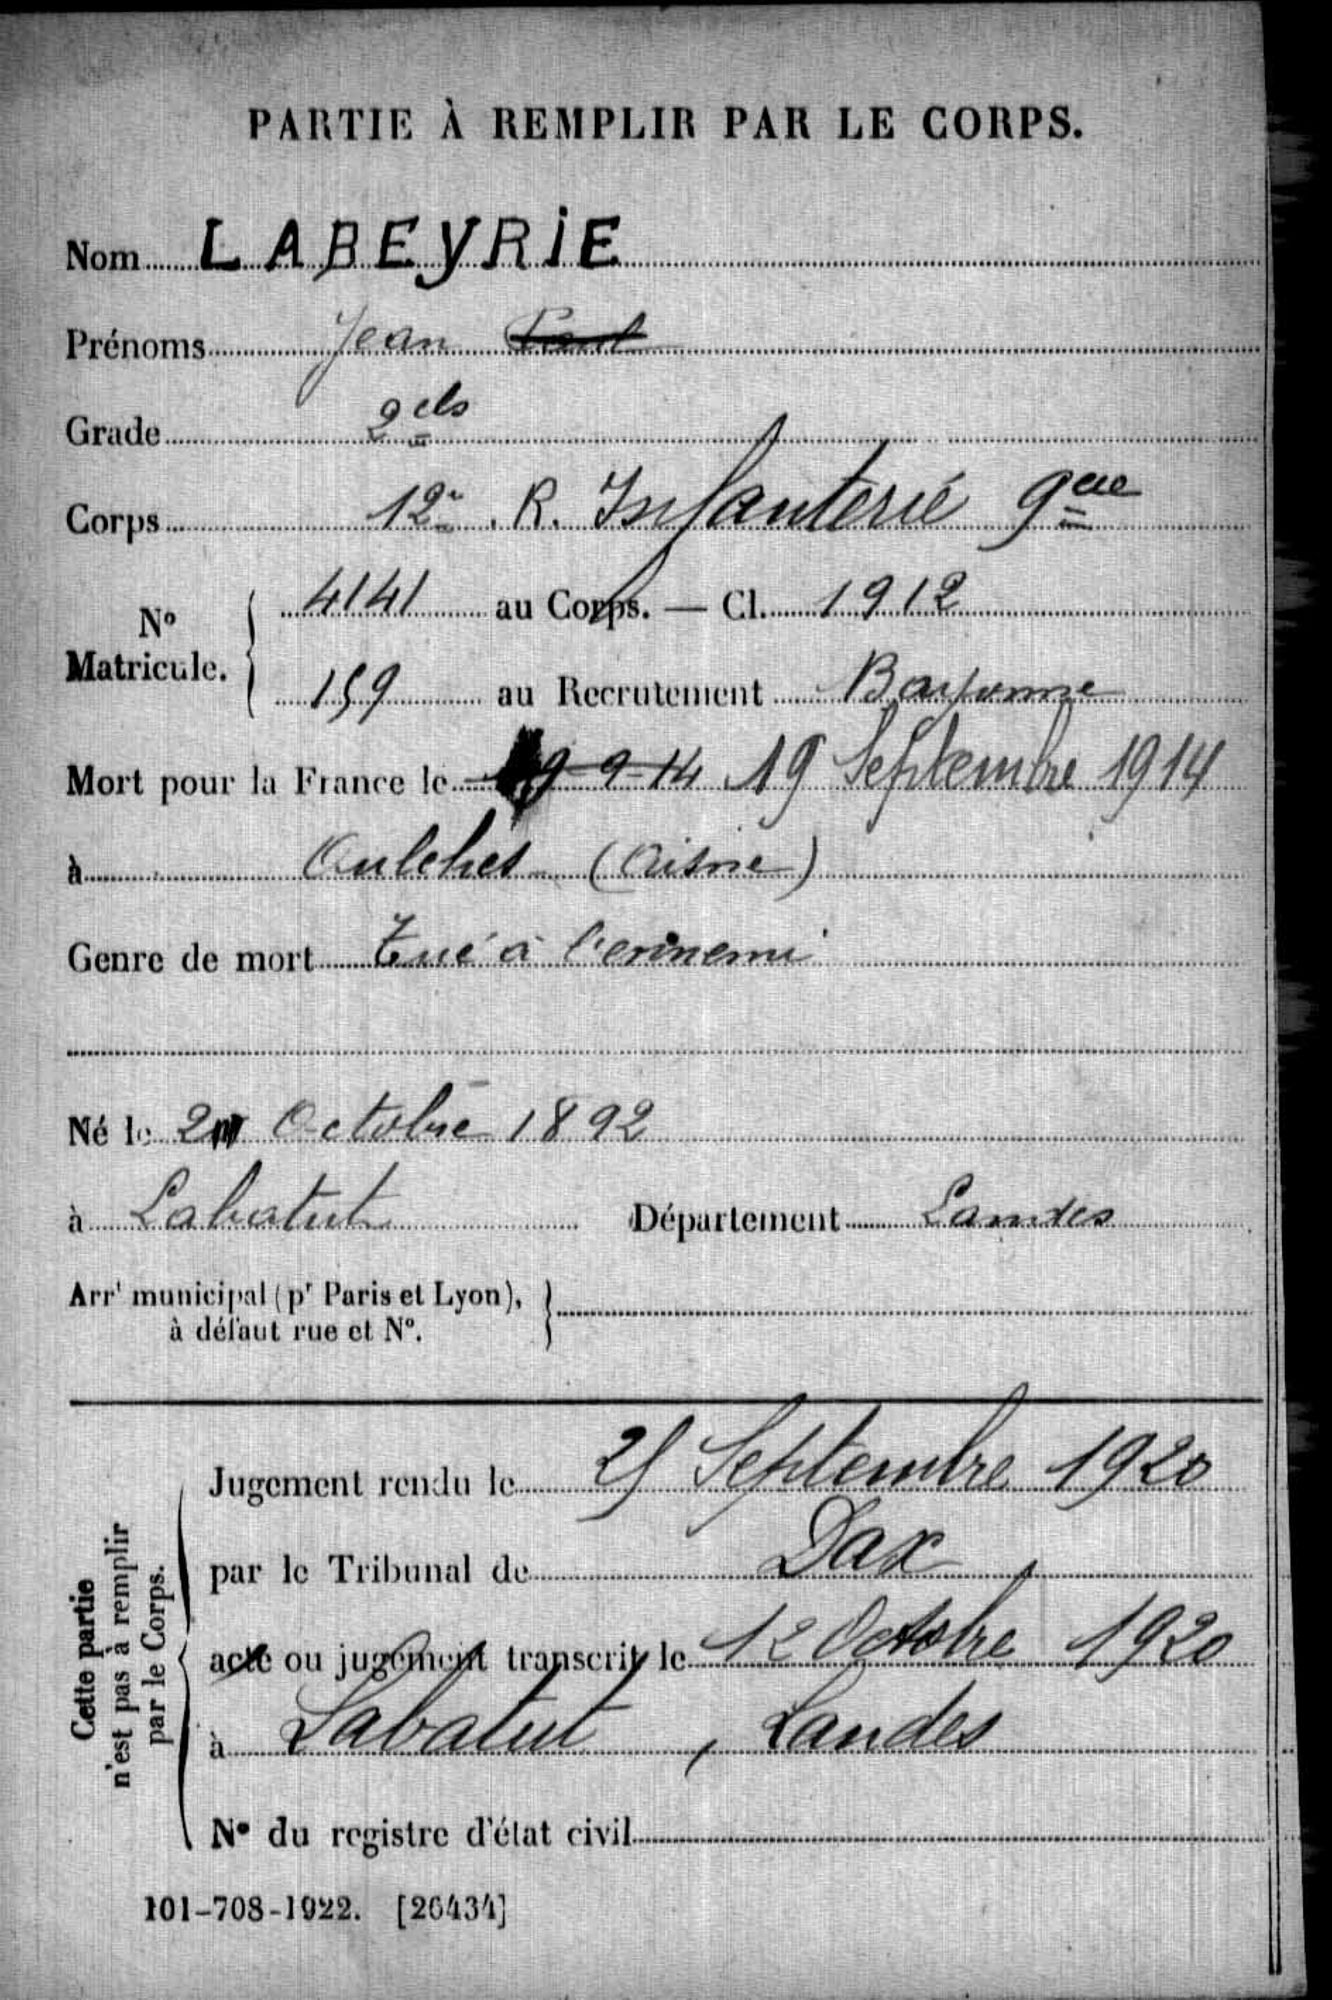 PARTIE À REMPLIR PAR LE CORPS.
Nom LABEYRIE
Prénoms Jean Paul
Grade 2 cls
Corps 12e R. Infanterie
Nº Matricule. 4141 au Corps. — Cl. 1912
159 au Recrutement Bayonne
Mort pour la France le 9-9-14 19 Septembre 1914
à Oulches (Aisne)
Genre de mort Tué à l'ennemi
Né le Octobre 1892
à Labatut Département Landes
Arrt municipal (pr Paris et Lyon),
à défaut rue et Nº.
Cette partie
n'est pas à remplir
par le Corps.
Jugement rendu le 25 Septembre 1920
par le Tribunal de Dax
acte ou jugement transcrit le 12 Octobre 1920
à Labatut, Landes
Nº du registre d'état civil
101-708-1922. [26434]